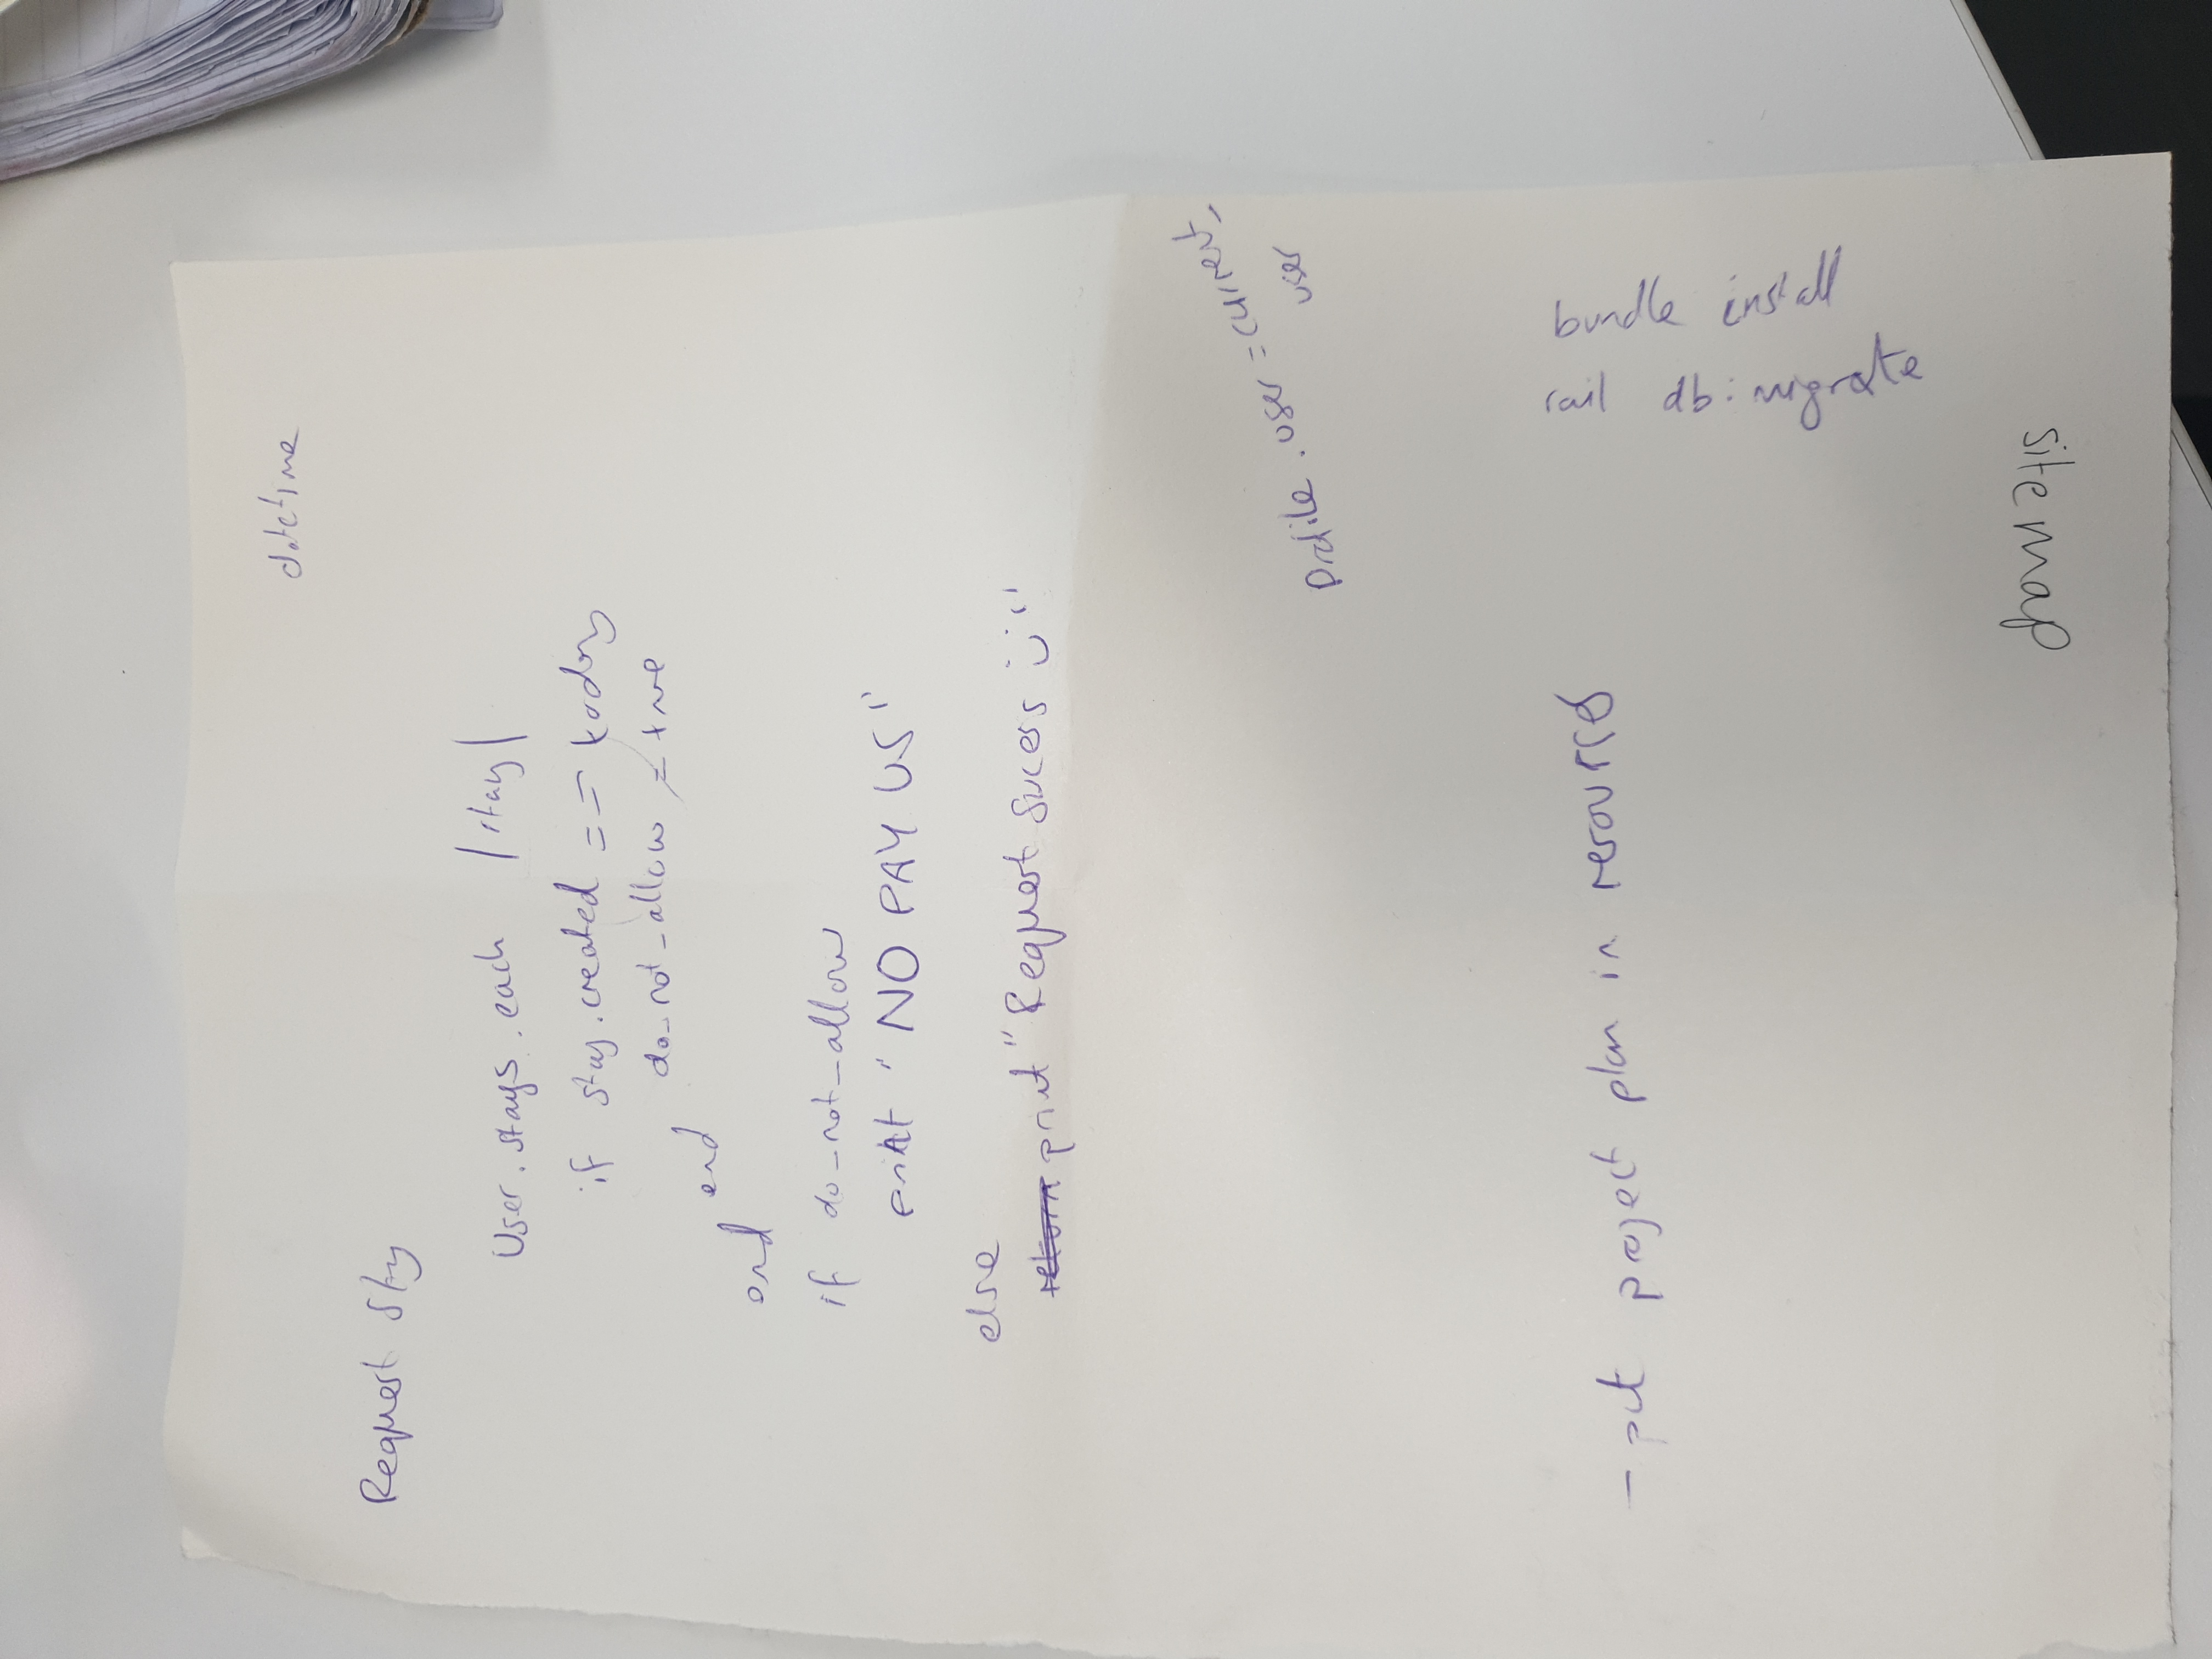 datetime
Request Stay
User.stays.each |stay|
if stay.created == today
do_not_allow = true
end
end
if do_not_allow
print "NO PAY US"
else
return print "Request Sucess :)"
Profile.user = current_
user
- put project plan in resources
bundle install
rail db:migrate
sitemap